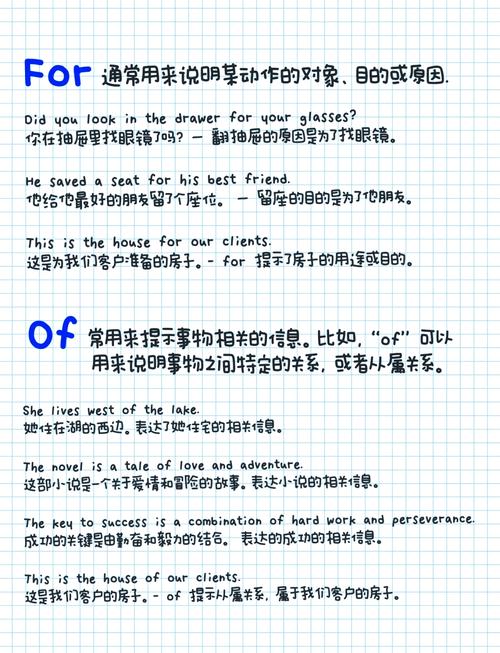 For 通常用来说明某动作的对象、目的或原因.
Did you look in the drawer for your glasses?
你在抽屉里找眼镜了吗? — 翻抽屉的原因是为了找眼镜。
He saved a seat for his best friend.
他给他最好的朋友留了个座位。 — 留座的目的是为了他朋友。
This is the house for our clients.
这是为我们客户准备的房子。- for 提示了房子的用途或目的。
Of 常用来提示事物相关的信息。比如，“of”可以
用来说明事物之间特定的关系，或者从属关系。
She lives west of the lake.
她住在湖的西边。表达了她住宅的相关信息。
The novel is a tale of love and adventure.
这部小说是一个关于爱情和冒险的故事。表达小说的相关信息。
The key to success is a combination of hard work and perseverance.
成功的关键是由勤奋和毅力的结合。 表达的成功的相关信息。
This is the house of our clients.
这是我们客户的房子。- of 提示从属关系，属于我们客户的房子。